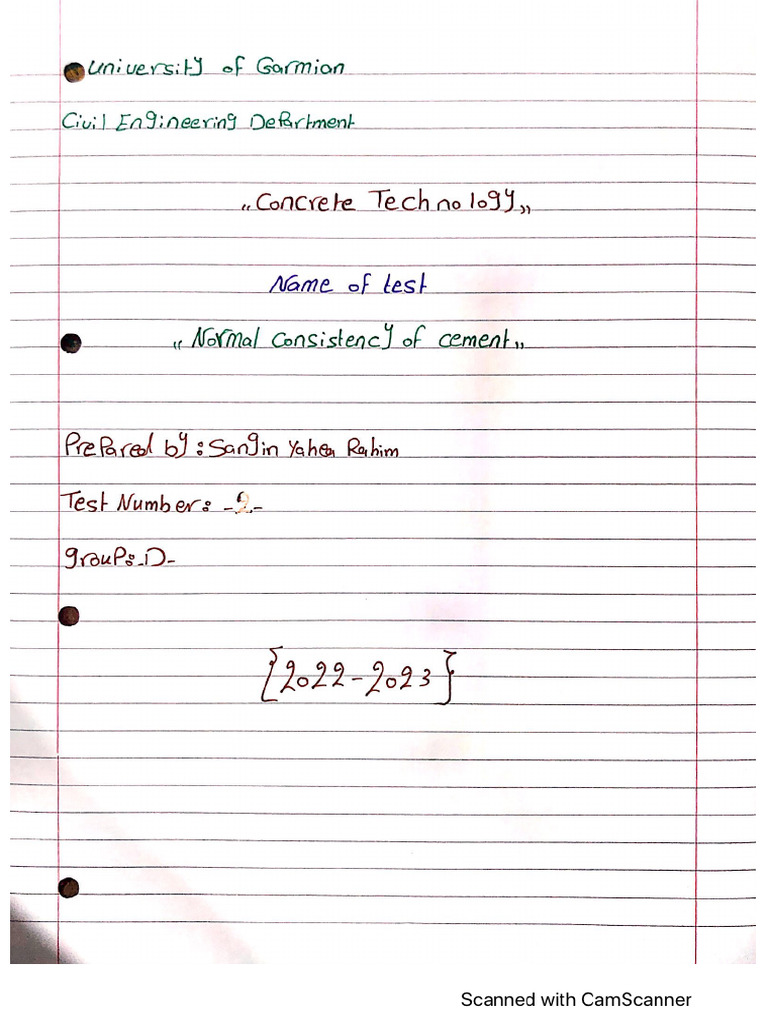 University of Garmian
Civil Engineering Department
"Concrete Technology"
Name of test
"Normal Consistency of cement"
Prepared by: Sangin Yahea Rahim
Test Number: -2-
group: -D-
{2022-2023}
Scanned with CamScanner